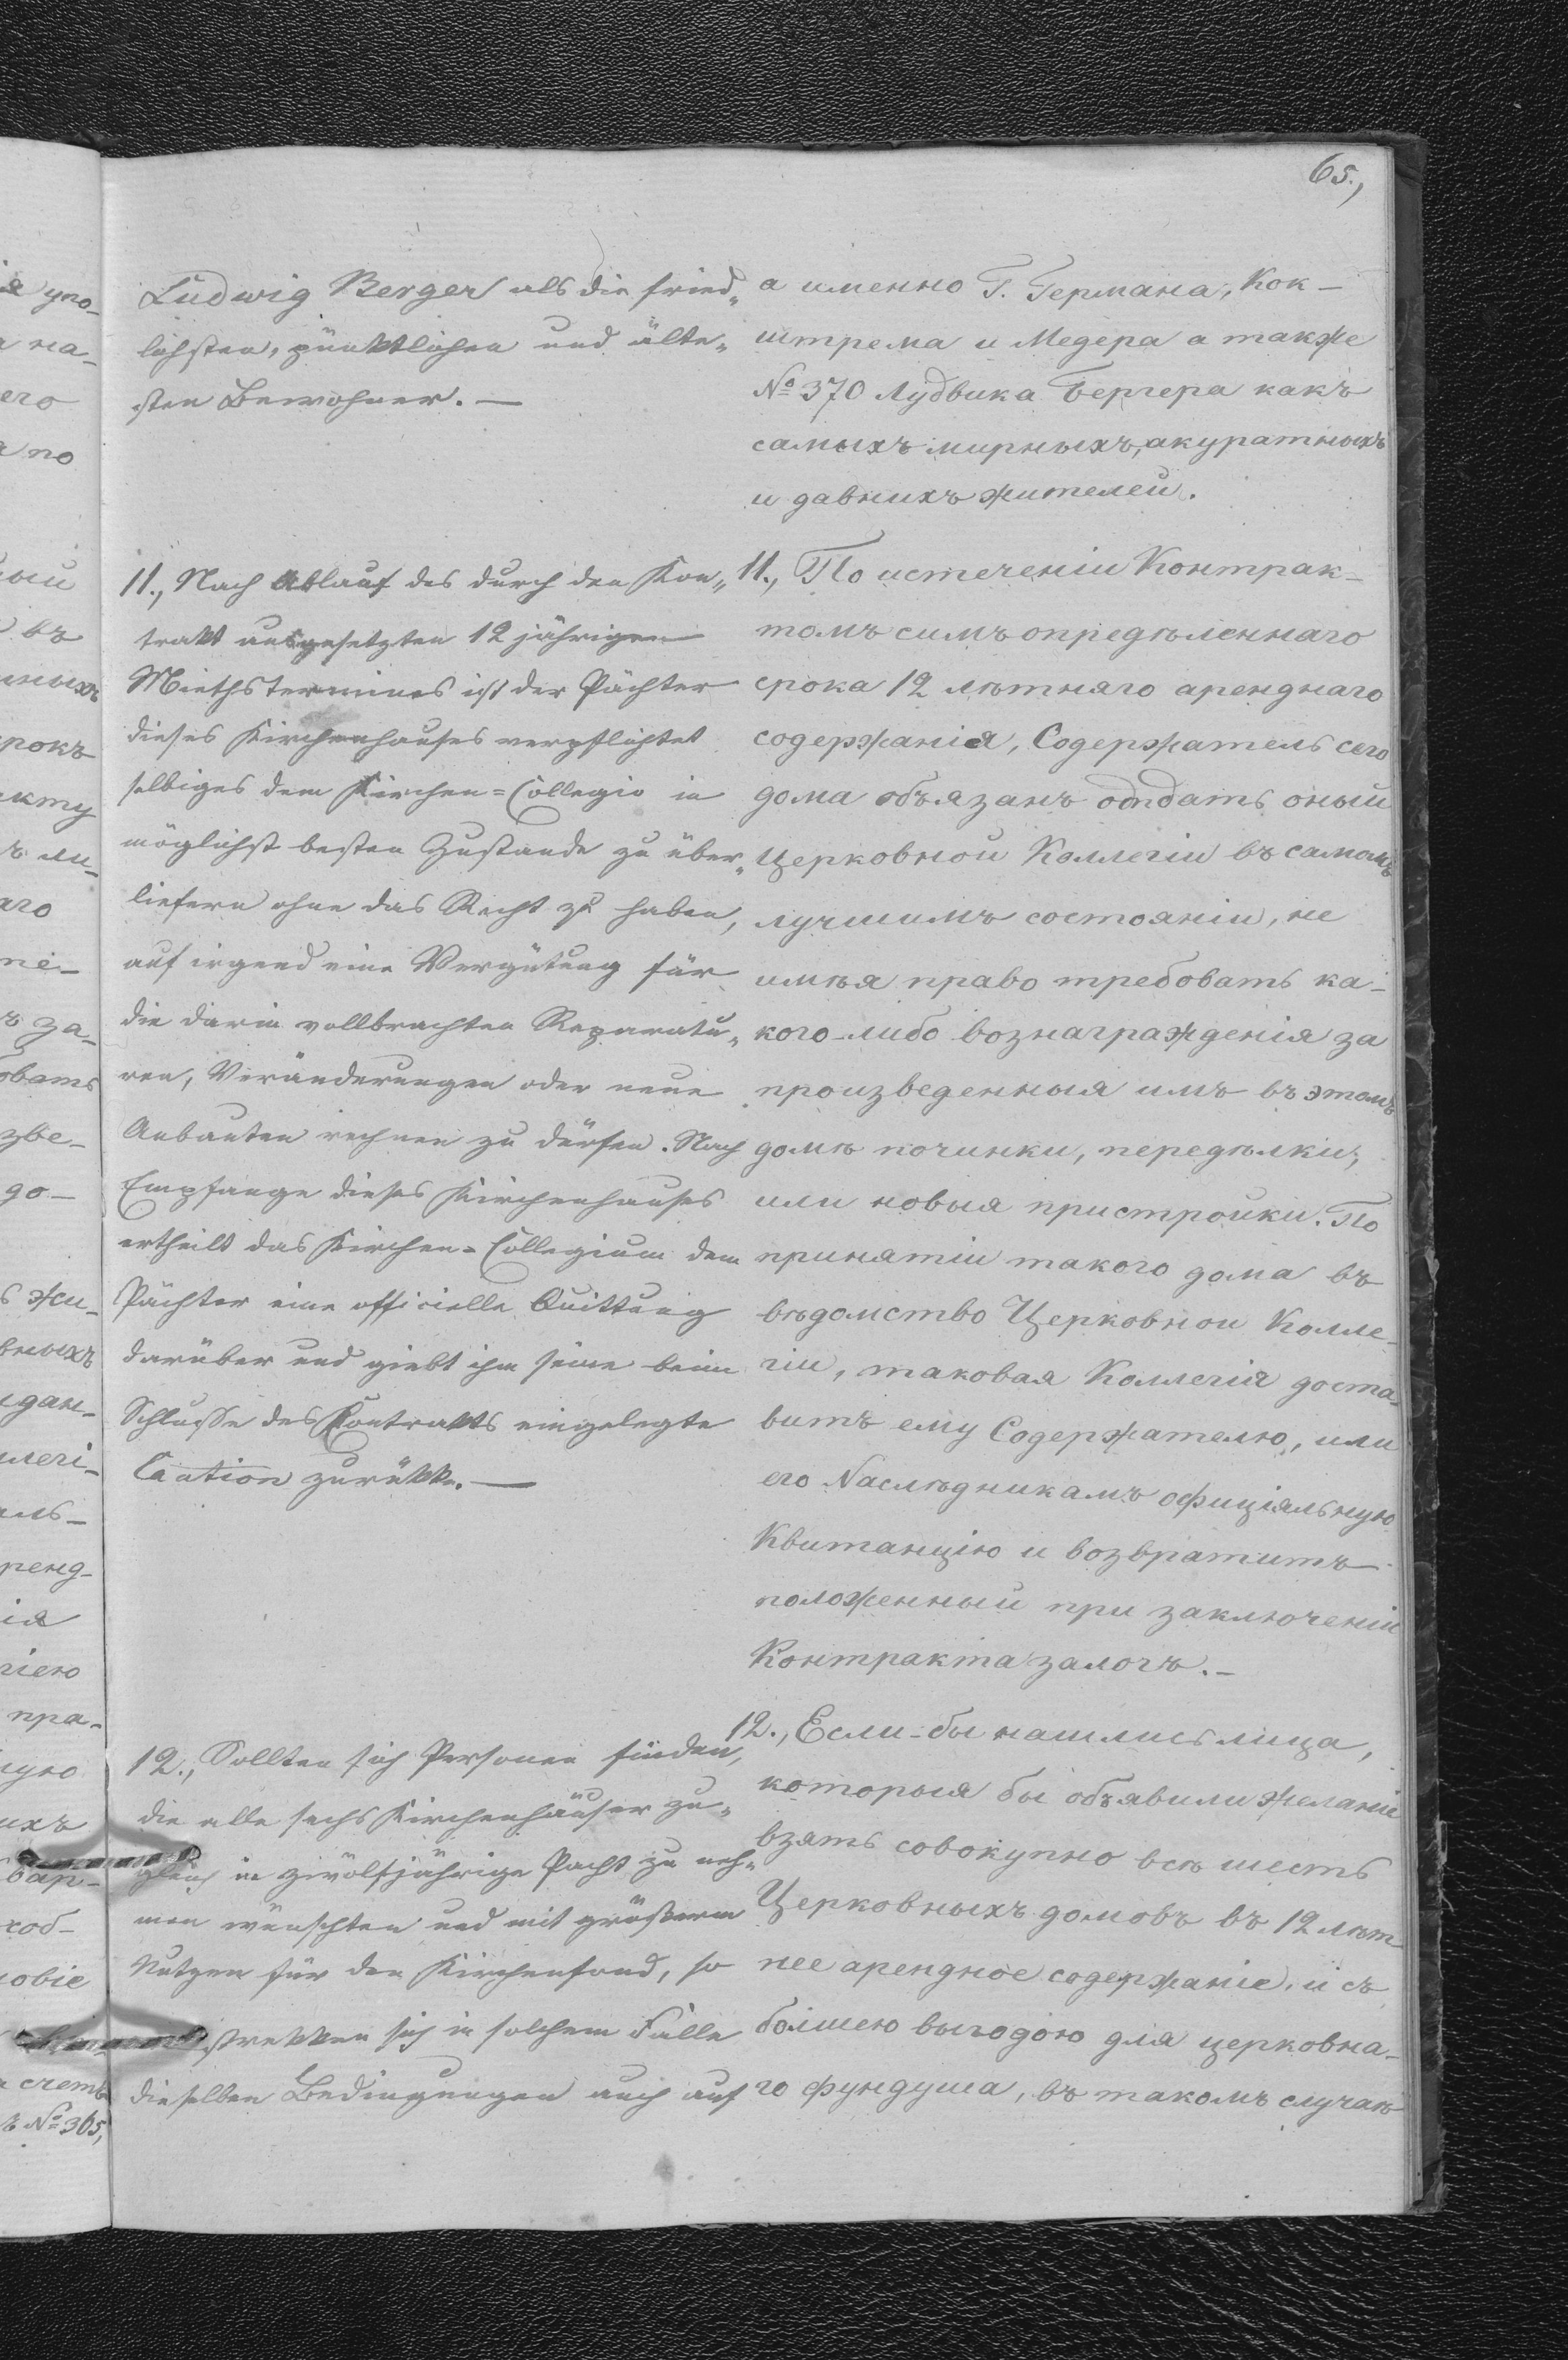 65.,
Ludwig Berger als die fried„
lichsten, pünktlichen und älte„
sten Bewohner. —
11., Nach Ablauf des durch den Kon„
trakt ausgesetzten 12 jährigen
Miethstermines ist der Pächter
dieses Kirchenhauses verpflichtet
selbiges dem Kirchen=Collegio in
möglichst besten Zustande zu über„
liefern ohne das Recht zu haben,
auf irgend eine Vergütung für
die darin vollbrachten Reparatu„
ren, Veränderungen oder neue
Anbauten rechnen zu dürfen. Nach
Empfange dieses Kirchenhauses
ertheilt das Kirchen=Collegium dem
Pächter eine officielle Quittung
darüber und giebt ihm seine beim
Schlusse des Kontrakts eingelegte
Caution zurükk. —
12., Sollten sich Personen finden,
die alle sechs Kirchenhäuser zu„
gleich in zwölfjährige Pacht zu neh„
men wünschten und mit größerem
Nutzen für den Kirchenfond, so
strekken sich in solchem Falle
dieselben Bedingungen auch auf
а именно Г. Германа, Кок-
штрема и Медера а также
№ 370 Лудвика Бергера какъ
самыхъ мирныхъ, акуратныхъ
и давнихъ жителей.
11., По истеченіи Контрак-
томъ симъ опредѣленнаго
срока 12 лѣтняго аренднаго
содержанія, Содержатель сего
дома объязанъ отдать оный
Церковной Коллегіи въ самомъ
лучшимъ состояніи, не
имѣя право требовать ка-
кого-либо вознагражденія за
произведенныя имъ въ этомъ
домѣ починки, передѣлки,
или новыя пристройки. По
принятіи такого дома въ
вѣдомство Церковной Колле-
гіи, таковая Коллегія доста-
витъ ему Содержателю, или
его Наслѣдникамъ офиціяльную
Квитанцію и возвратитъ
положенный при заключеніи
Контракта залогъ. -
12., Если-бы нашлись лица,
которыя бы объявили желаніе
взять совокупно всѣ шесть
Церковныхъ домовъ въ 12 лѣт-
нее арендное содержаніе, и съ
болшею выгодою для церковна-
го фундуша, въ такомъ случаѣ